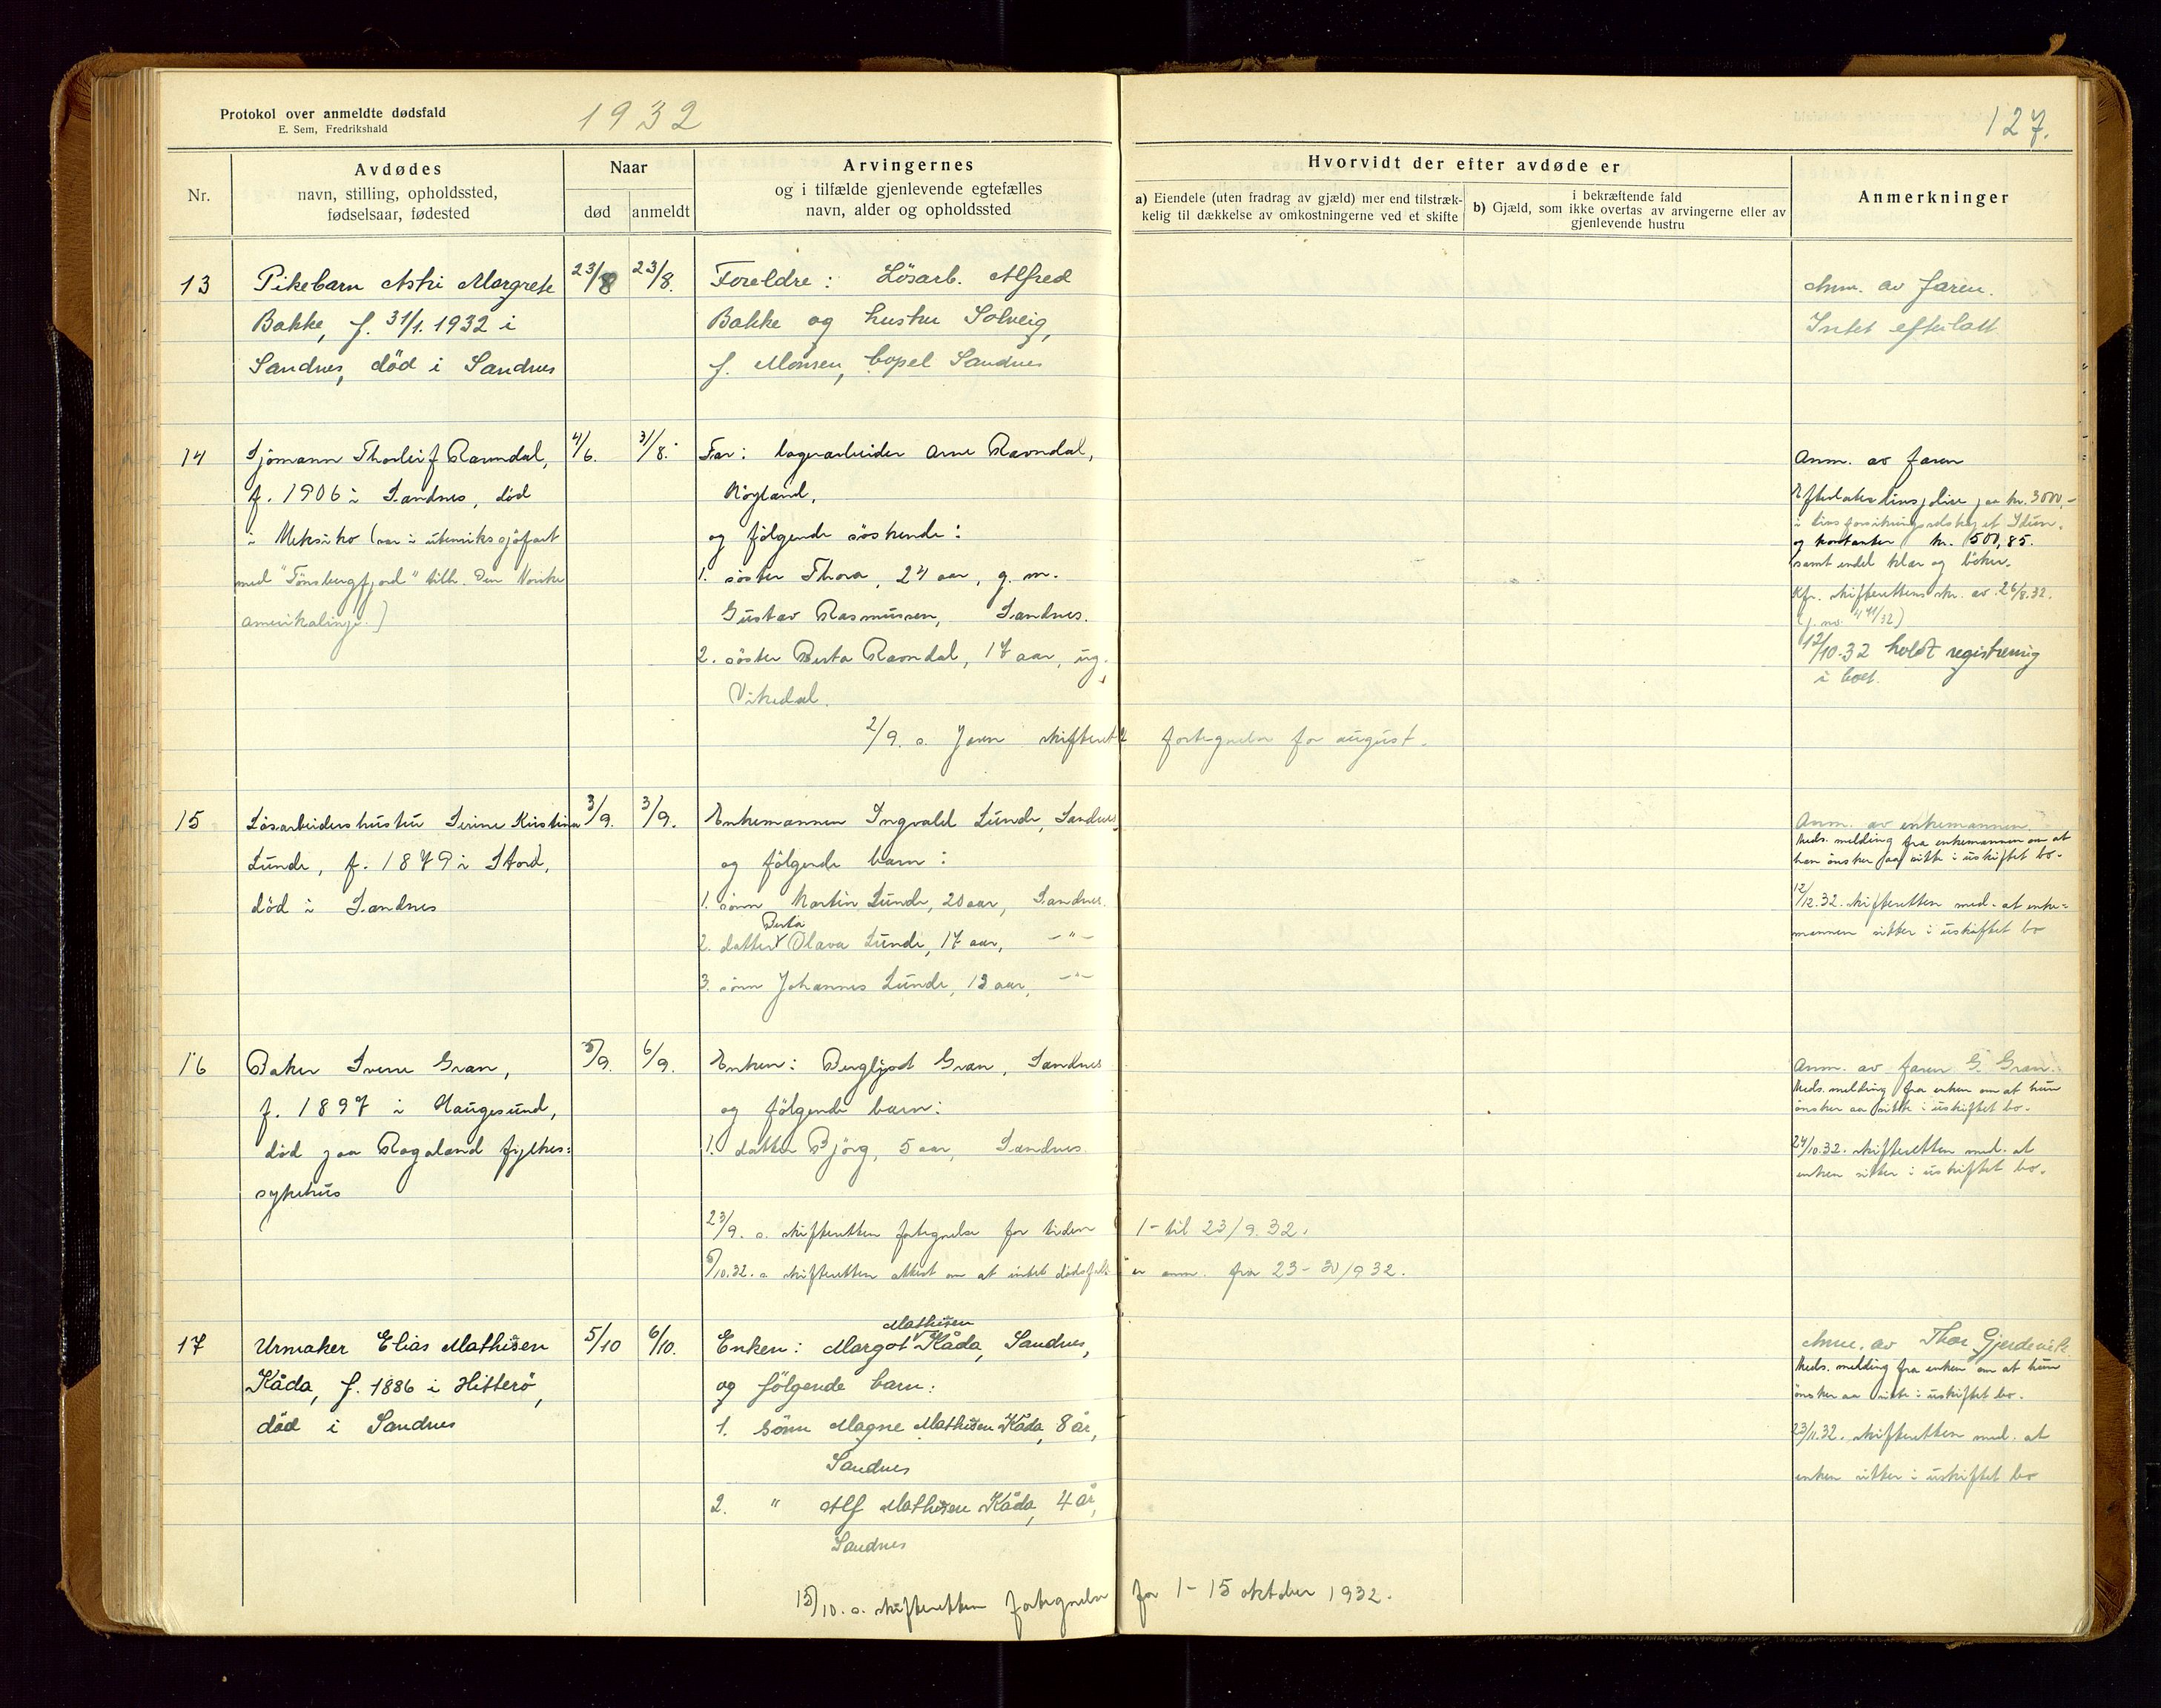 Protokol over anmeldte dødsfald
E. Sem, Fredrikshald
1932
127.
Nr.
Avdødes
navn, stilling, opholdssted,
fødselsaar, fødested
Naar
død
anmeldt
Arvingernes
og i tilfælde gjenlevende egtefælles
navn, alder og opholdssted
Hvorvidt der efter avdøde er
a) Eiendele (uten fradrag av gjæld) mer end tilstræk-
kelig til dækkelse av omkostningerne ved et skifte
i bekræftende fald
b) Gjæld, som ikke overtas av arvingerne eller av
gjenlevende hustru
Anmerkninger
13
Pikebarn Astri Margrete
Bakke, f. 31/1. 1932 i
Sandnes, död i Sandnes
23/8
23/8.
Foreldre: Lösarb. Alfred
Bakke og hustru Solveig,
f. Monsen, bopel Sandnes
Anm. av faren.
Intet efterlatt
14
Sjömann Thorleif Ravndal,
f. 1906 i Sandnes, död
i Meksiko (var i utenriks sjöfart
med "Tönsbergfjord" tilh. Den Norske
Amerikalinje.)
4/6.
31/8.
Far: lagerarbeider Arne Ravndal,
Höyland,
og fölgende söskende:
1. söster Thora, 24 aar, g. m.
Gustav Rasmussen, Sandnes.
2. söster Berta Ravndal, 17 aar, ug.,
Vikedal.
2/9. s. Jæren skifterett fortegnelse for august.
Anm. av faren
Efterlater livspolise paa kr. 3000,-
i livsforsikringsselskapet Idun,
og kontanter kr. 500,85.
samt endel klær og böker.
Kfr. skifterettens skr. av 26/8.32.
12/10.32 holdt registrering
i boet.
15
Lösarbeiderhustru Serine Kristina
Lunde, f. 1879 i Stord,
död i Sandnes
3/9.
3/9.
Enkemannen Ingvald Lunde, Sandnes,
og fölgende barn:
1. sönn Martin Lunde, 20 aar, Sandnes.
Berta
2. datter Olava Lunde, 17 aar, -"-
3. sönn Johannes Lunde, 13 aar, -"-
Anm. av enkemannen.
Meds. melding fra enkemannen om at
han önsker aa sitte i uskiftet bo.
12/12.32. skifteretten med. at enke-
mannen sitter i uskiftet bo
16
Baker Sverre Gran,
f. 1897 i Haugesund,
död paa Rogaland fylkes-
sykehus
5/9.
6/9.
Enken: Bergljot Gran, Sandnes
og fölgende barn:
1. datter Björg, 5 aar, Sandnes
23/9. s. skifteretten fortegnelse for tiden 1- til 23/9.32.
5/10.32. s. skifteretten attest om at intet dödsfall er anm. fra 23-30/9 32.
Anm. av faren G. Gran.
Meds. melding fra enken om at hun
önsker aa sitte i uskiftet bo.
24/10.32. skifteretten med. at
enken sitter i uskiftet bo.
17
Urmaker Elias Mathisen
Kåda, f. 1886 i Hitterö,
död i Sandnes
5/10
6/10.
Mathisen
Enken: Margot Kåda, Sandnes,
og fölgende barn:
1. sönn Magne Mathisen Kåda, 8 år,
Sandnes
2. " Alf Mathisen Kåda, 4 år,
Sandnes
Anm. av Thor Gjerdevik.
Meds. melding fra enken om at hun
önsker aa sitte i uskiftet bo.
23/11.32. skifteretten med. at
enken sitter i uskiftet bo
15/10. s. skifteretten fortegnelse for 1-15 oktober 1932.